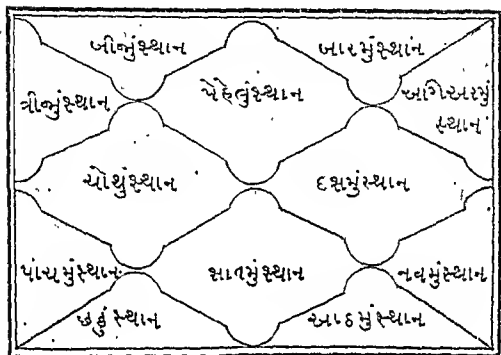 બીજુંસ્થાન
બારમુંસ્થાન
ત્રીજુંસ્થાન
પેહેલુંસ્થાન
અગિઅરમું
સ્થાન
ચોથુંસ્થાન
દસમુંસ્થાન
પાંચમુંસ્થાન
સાતમુંસ્થાન
નવમુંસ્થાન
છઠું સ્થાન
આઠમુંસ્થાન